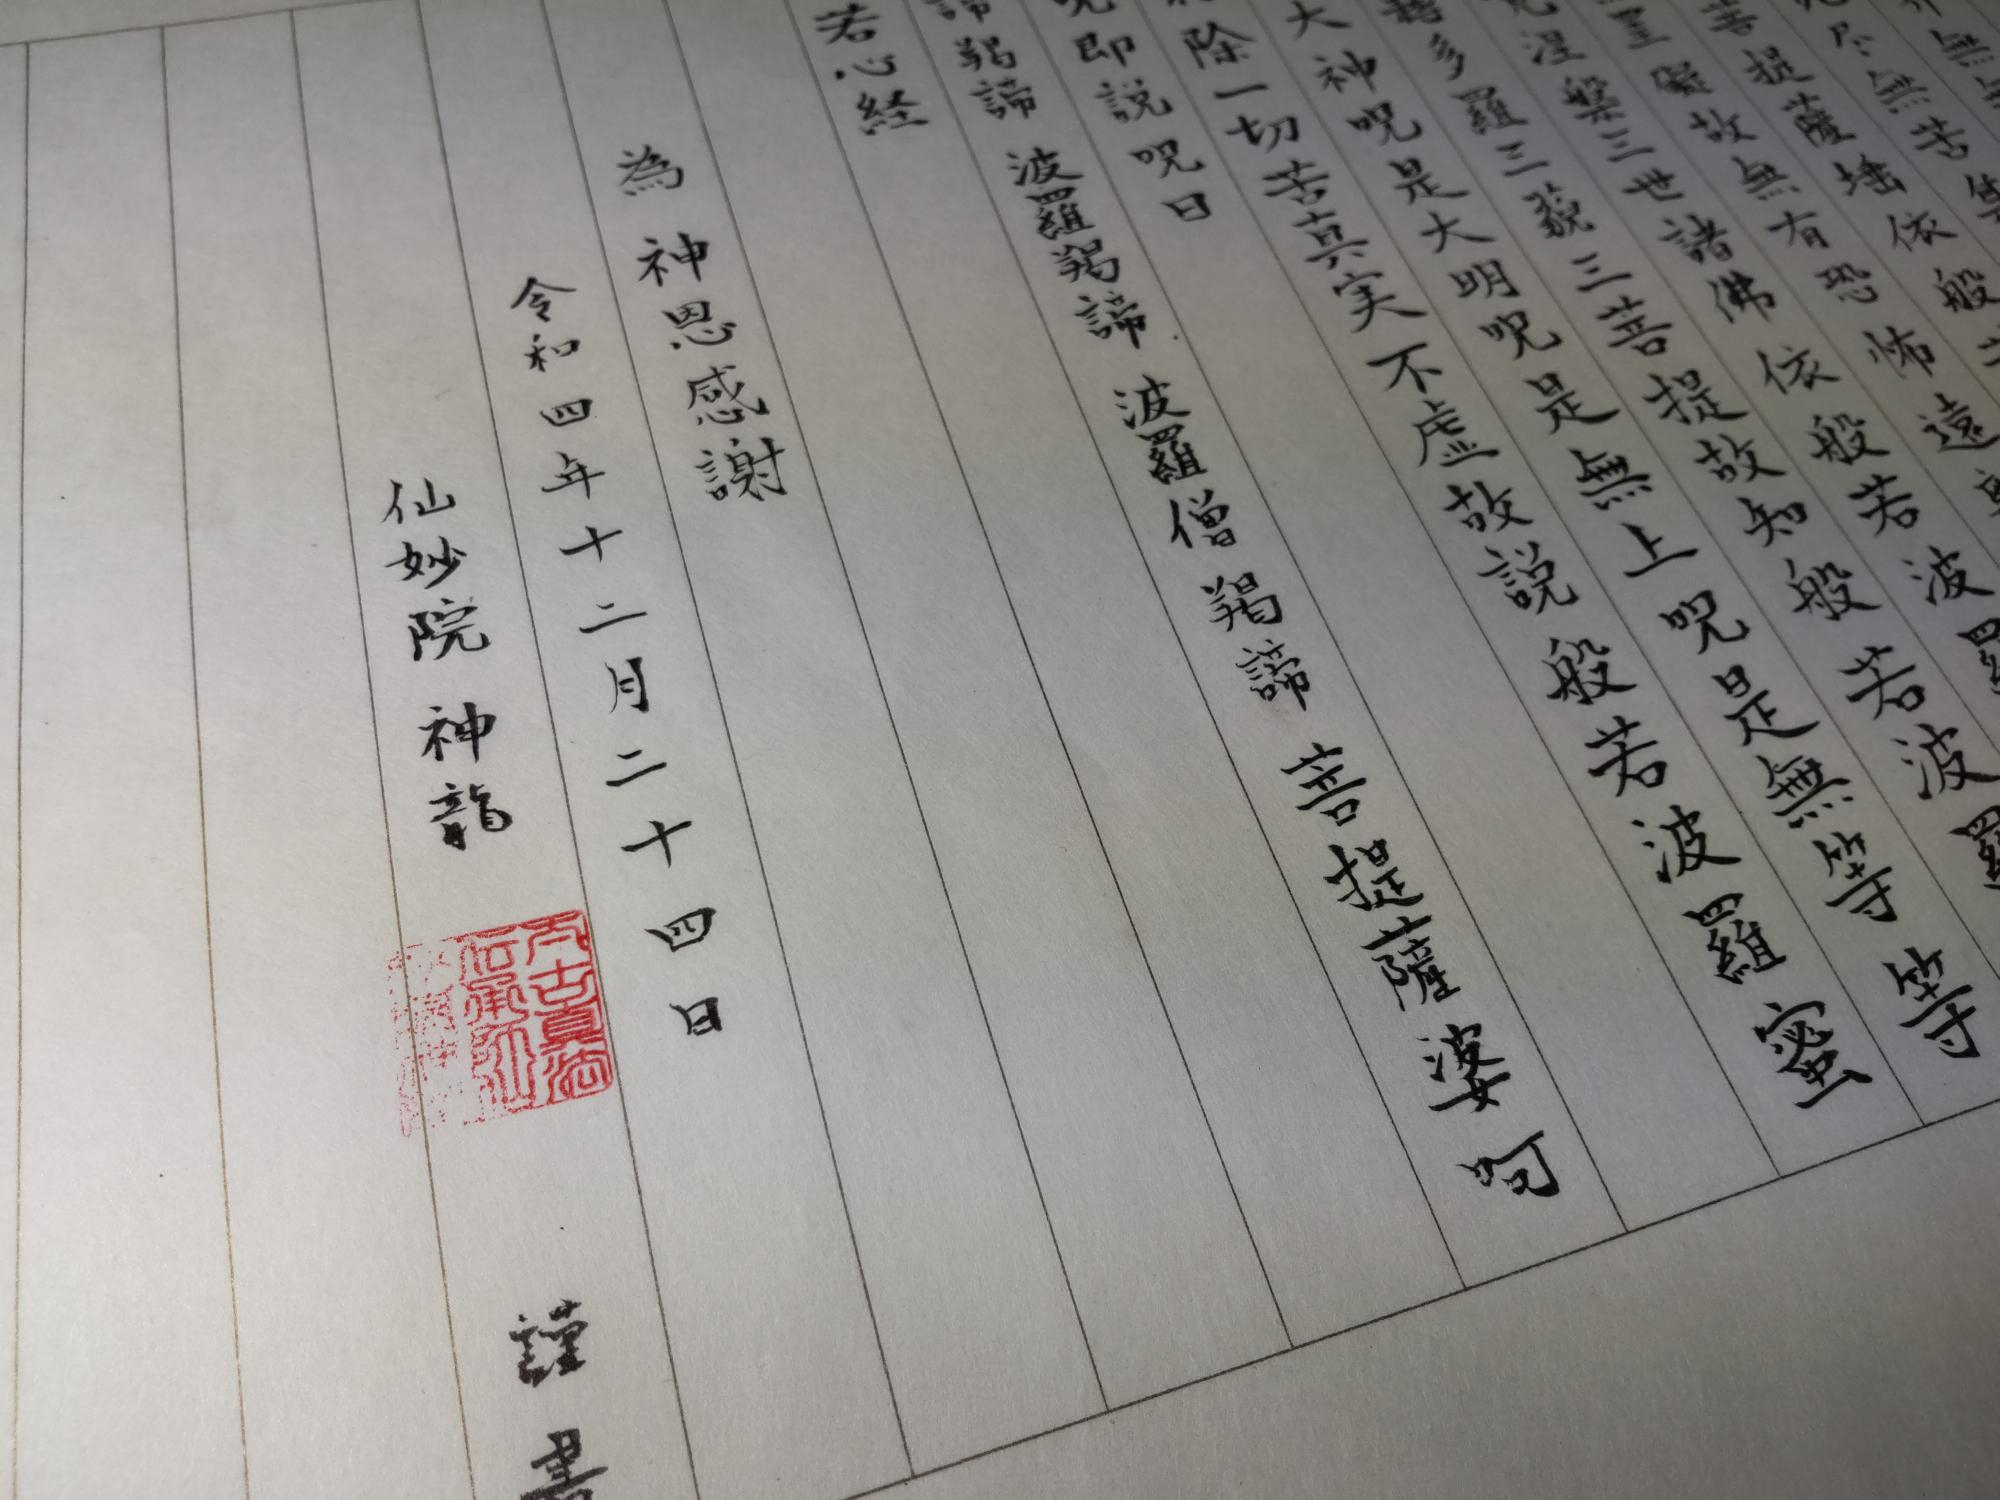 無無
尽無苦集
菩提薩埵依般若
罣礙故無有恐怖遠
涅槃三世諸佛依般若波羅
耨多羅三藐三菩提故知般若波羅
大神呪是大明呪是無上呪是無等等
除一切苦真実不虚故説般若波羅蜜
呪即説呪曰
諦羯諦 波羅羯諦 波羅僧羯諦 菩提薩婆呵
若心経
為 神恩感謝
令和四年十二月二十四日
仙妙院 神龍 謹書